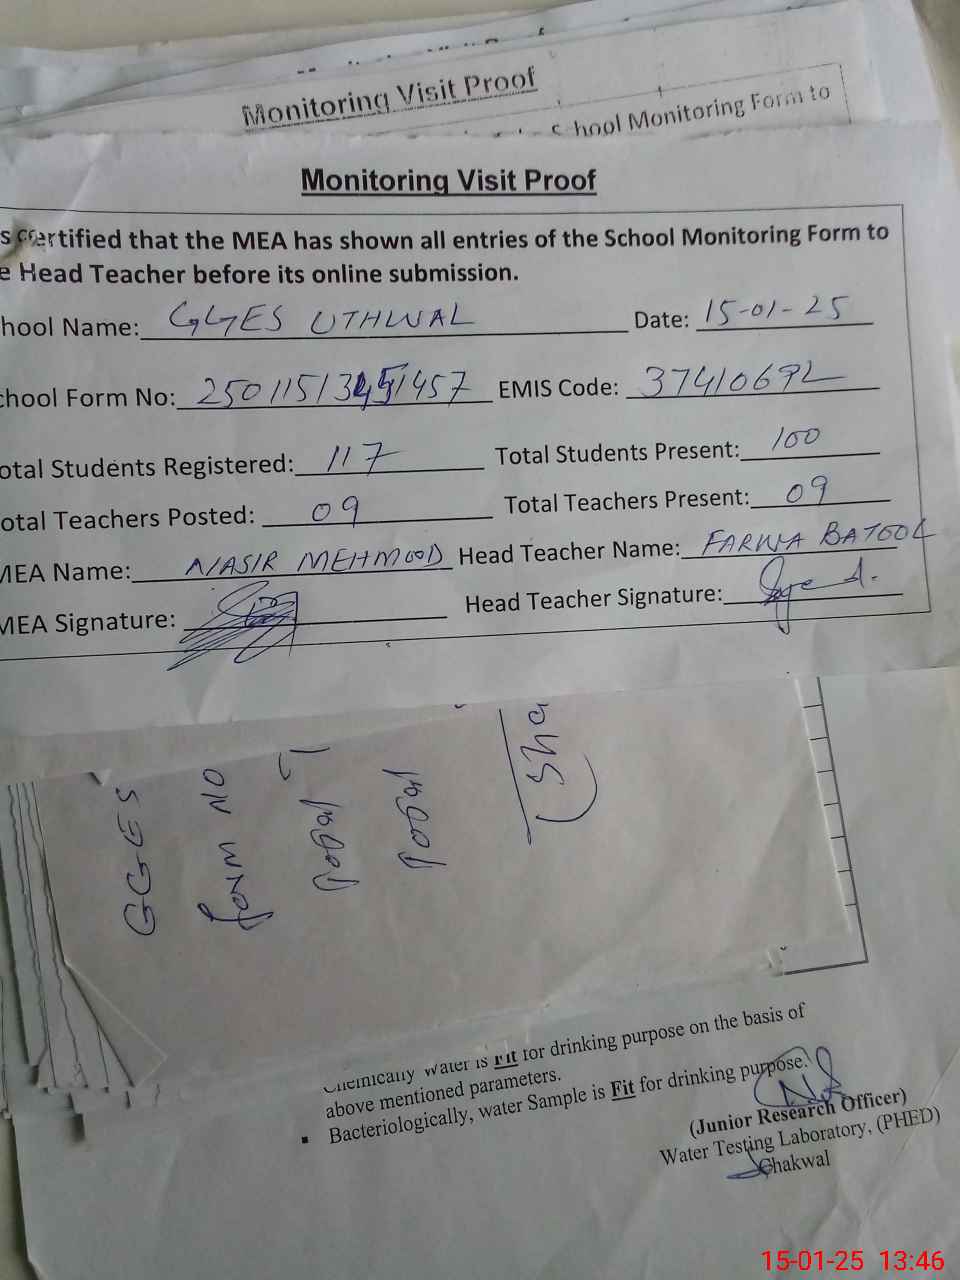 Monitoring Visit Proof
hool Monitoring Form to
Monitoring Visit Proof
s certified that the MEA has shown all entries of the School Monitoring Form to
e Head Teacher before its online submission.
hool Name: GGES UTHWAL Date: 15-01-25
chool Form No: EMIS Code: 37410692
otal Students Registered: 117 Total Students Present: 100
otal Teachers Posted: 09 Total Teachers Present: 09
MEA Name: NASIR MEHMOOD Head Teacher Name: FARWA BATOOL
MEA Signature: Head Teacher Signature:
GGES
Form NO
(Sha
Chemically Water is Fit for drinking purpose on the basis of
above mentioned parameters.
▪ Bacteriologically, water Sample is Fit for drinking purpose.
(Junior Research Officer)
Water Testing Laboratory, (PHED)
Chakwal
15-01-25 13:46